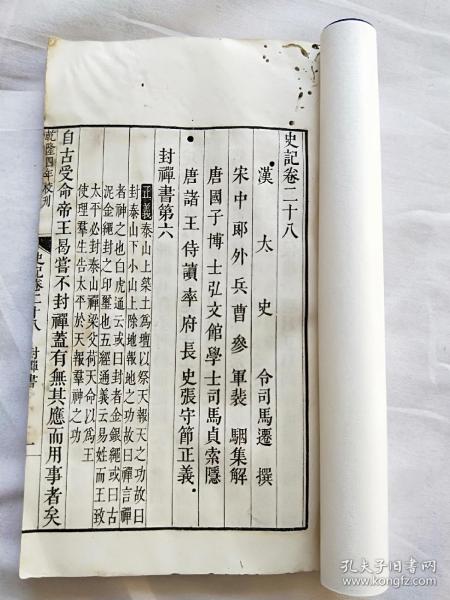 史記卷二十八
漢太史令司馬遷撰
宋中郎外兵曹參軍裴駰集解
唐國子博士弘文館學士司馬貞索隱
唐諸王侍讀率府長史張守節正義
封禪書第六
正義泰山上築土為壇以祭天報天之功故曰
封泰山下小山上除地報地之功故曰禪言禪
者神之也白虎通云或曰封者金銀繩或曰古
泥金繩封之印璽也五經通義云易姓而王致
太平必封泰山禪梁父荷天命以為王
使理羣生告太平於天報羣神之功
自古受命帝王曷嘗不封禪蓋有無其應而用事者矣
乾隆四年校刊
史記卷二十八 封禪書
孔夫子旧书网
www.kongfz.com